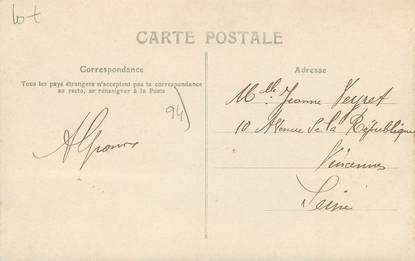 lot
CARTE POSTALE
Correspondance
Tous les pays étrangers n'acceptent pas la correspondance
au recto, se renseigner à la Poste
Adresse
Alfonse
94)
Mlle Jeanne Veyret
10 Avenue de la République
Vincennes
Seine